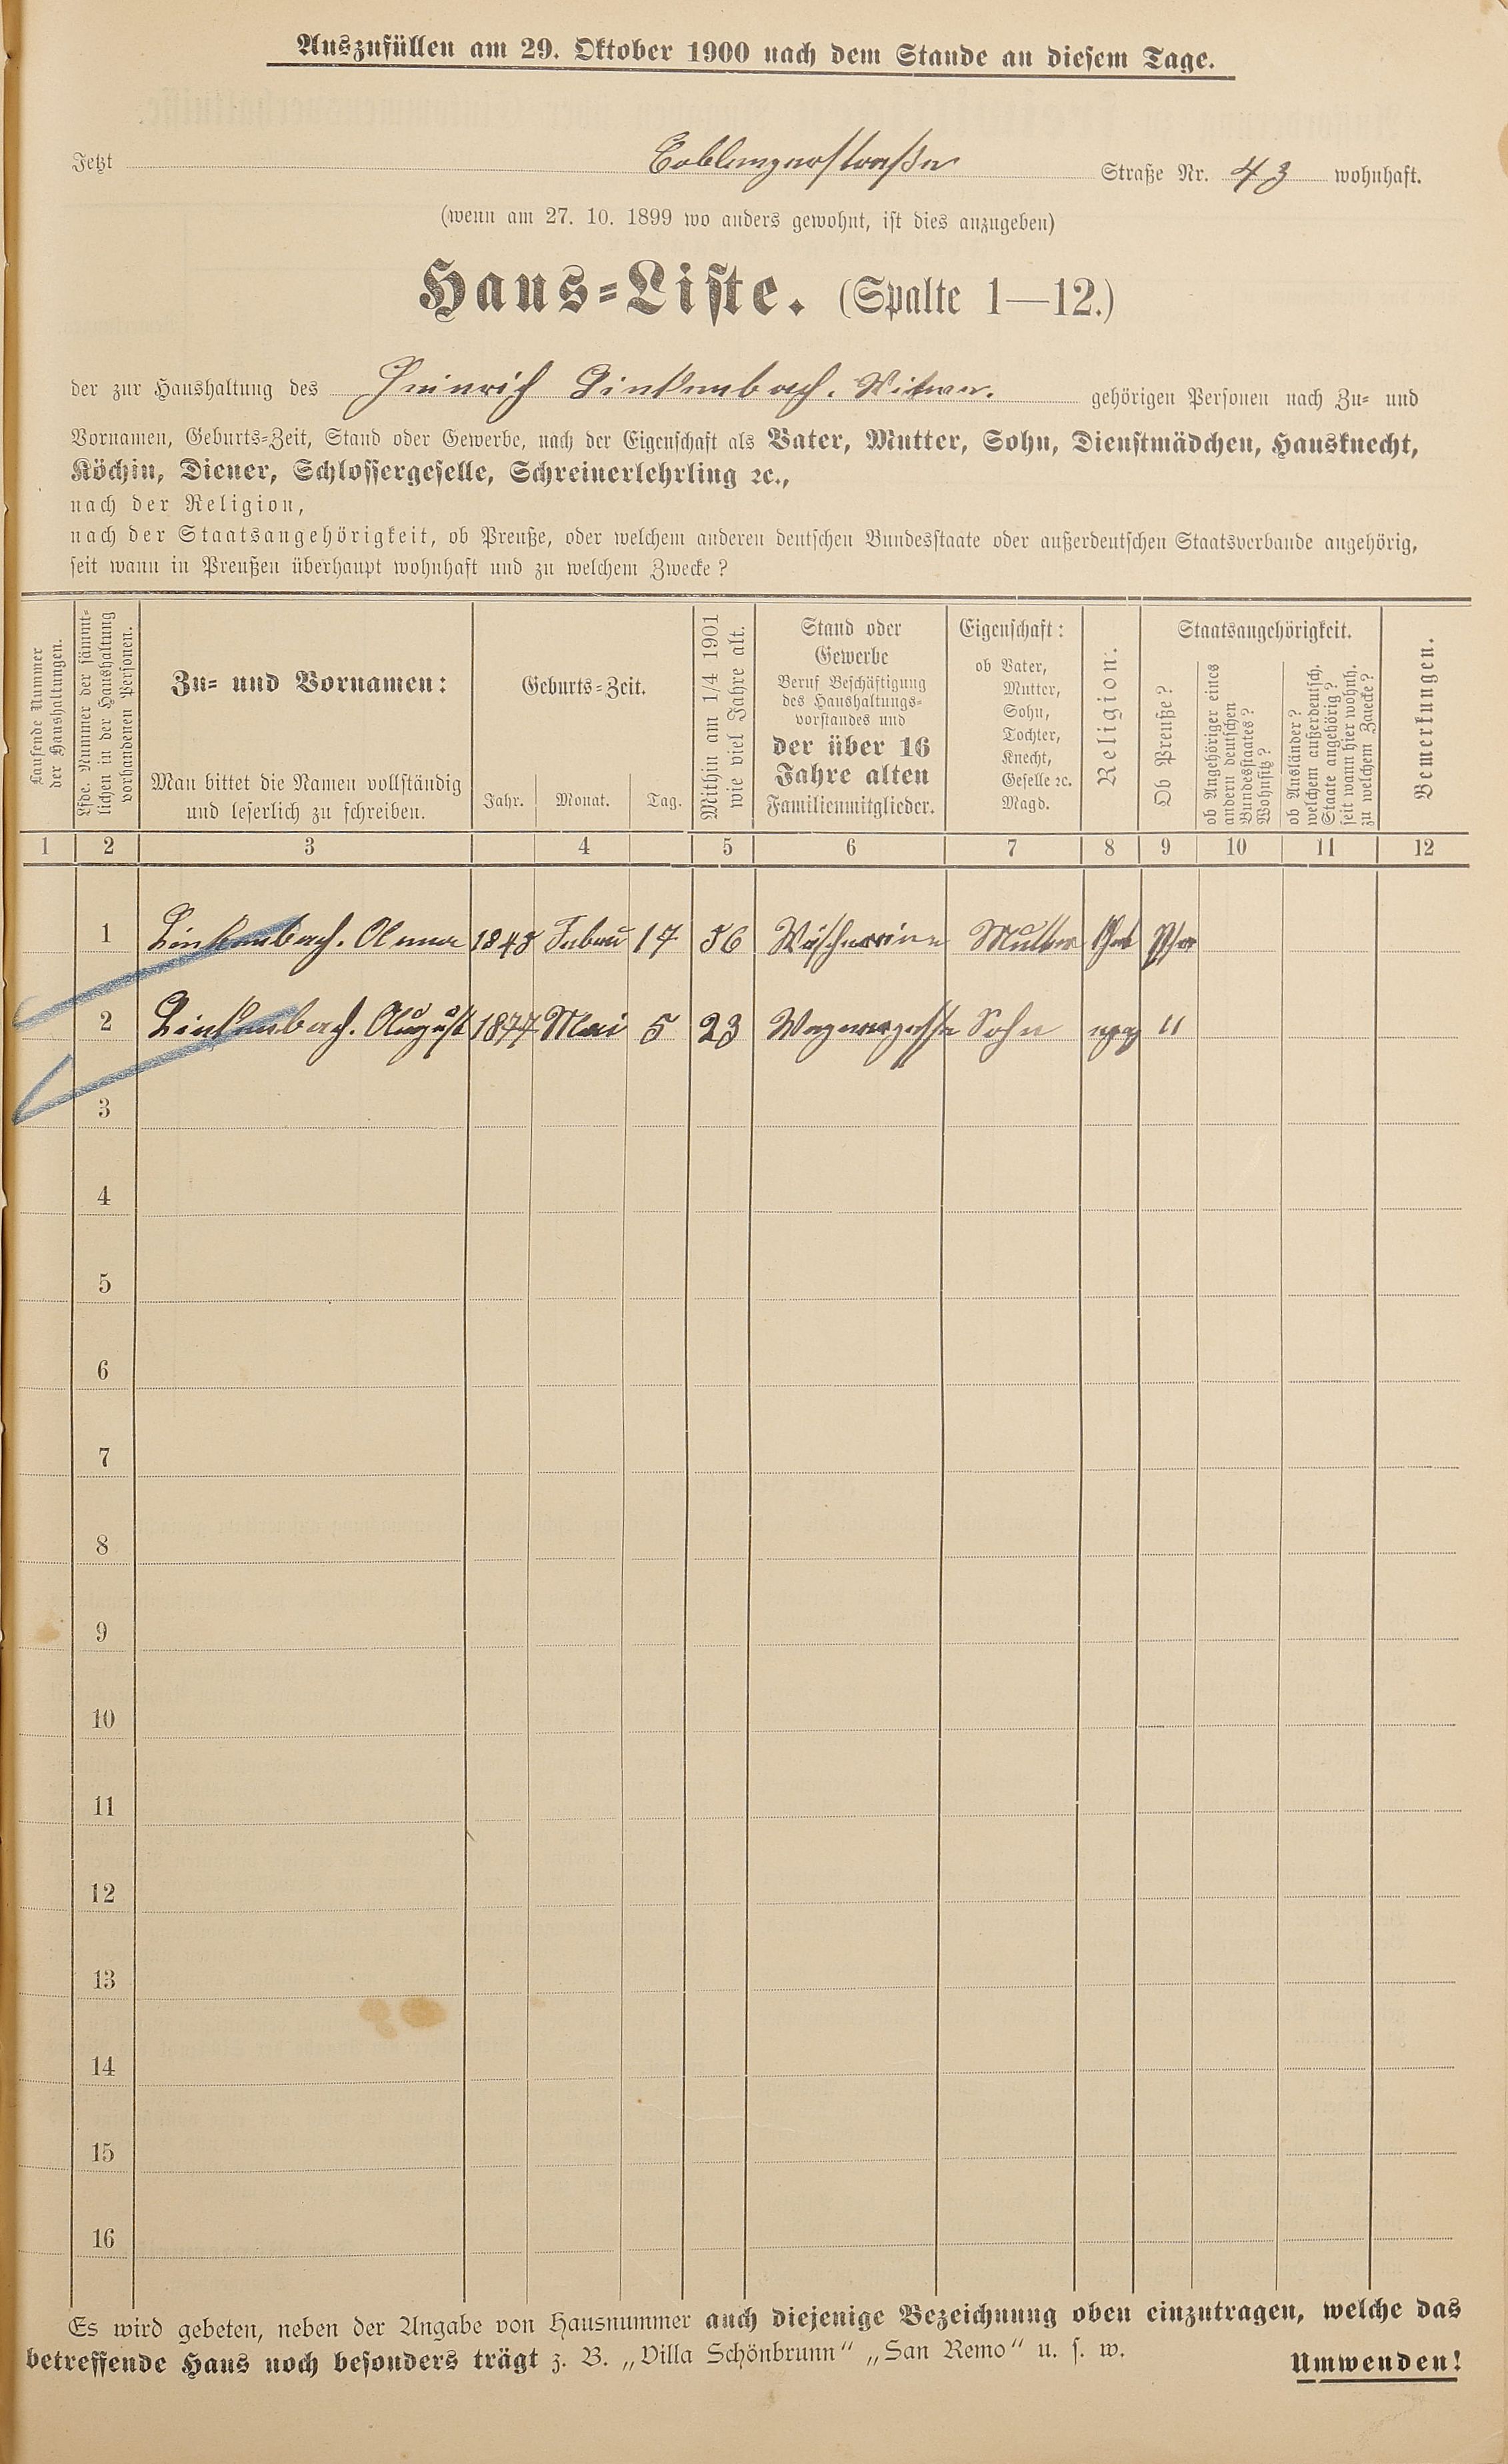 Auszufüllen am 29. Oktober 1900 nach dem Stande an diesem Tage.
Jetzt Coblenzerstraße Straße Nr. 43 wohnhaft.
(wenn am 27. 10. 1899 wo anders gewohnt, ist dies anzugeben)
Haus-Liste. (Spalte 1—12.)
der zur Haushaltung des Heinrich Linkenbach. Witwe. gehörigen Personen nach Zu- und
Vornamen, Geburts-Zeit, Stand oder Gewerbe, nach der Eigenschaft als Vater, Mutter, Sohn, Dienstmädchen, Hausknecht,
Köchin, Diener, Schlossergeselle, Schreinerlehrling ꝛc.,
nach der Religion,
nach der Staatsangehörigkeit, ob Preuße, oder welchem anderen deutschen Bundesstaate oder außerdeutschen Staatsverbande angehörig,
seit wann in Preußen überhaupt wohnhaft und zu welchem Zwecke?
Laufende Nummer
der Haushaltungen.
Lfde. Nummer der sämmt-
lichen in der Haushaltung
vorhandenen Personen.
Zu- und Vornamen:
Man bittet die Namen vollständig
und leserlich zu schreiben.
Geburts-Zeit.
Jahr. Monat. Tag.
Mithin am 1/4 1901
wie viel Jahre alt.
Stand oder
Gewerbe
Beruf Beschäftigung
des Haushaltungs-
vorstandes und
der über 16
Jahre alten
Familienmitglieder.
Eigenschaft:
ob Vater,
Mutter,
Sohn,
Tochter,
Knecht,
Geselle ꝛc.
Magd.
Religion.
Staatsangehörigkeit.
Ob Preuße?
ob Angehöriger eines
andern deutschen
Bundesstaates?
Wohnsitz?
ob Ausländer?
welchem außerdeutsch.
Staate angehörig?
seit wann hier wohnh.
zu welchem Zwecke?
Bemerkungen.
1 2 3 4 5 6 7 8 9 10 11 12
1 Linkenbach. Anna Februar 17 56 Wäscherin Mutter
2 Linkenbach. August 1877 Mai 5 23 Sohn "
3
4
5
6
7
8
9
10
11
12
13
14
15
16
Es wird gebeten, neben der Angabe von Hausnummer auch diejenige Bezeichnung oben einzutragen, welche das
betreffende Haus noch besonders trägt z. B. „Villa Schönbrunn“ „San Remo“ u. s. w.
Umwenden!